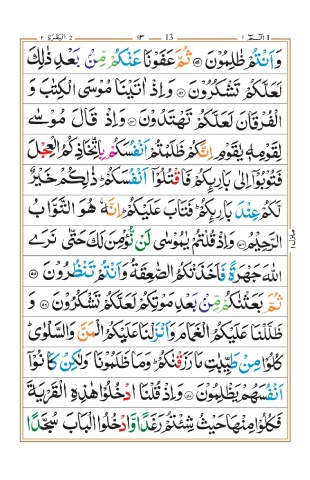 ٢ البقرة 2 ١٣ 13 الٓمّٓ ١ 1
وَاَنْتُمْ ظٰلِمُوْنَ ۝٥١ ثُمَّ عَفَوْنَا عَنْكُمْ مِّنْۢ بَعْدِ ذٰلِكَ
لَعَلَّكُمْ تَشْكُرُوْنَ ۝٥٢ وَاِذْ اٰتَيْنَا مُوْسَى الْكِتٰبَ وَ
الْفُرْقَانَ لَعَلَّكُمْ تَهْتَدُوْنَ ۝٥٣ وَاِذْ قَالَ مُوْسٰى
لِقَوْمِهٖ يٰقَوْمِ اِنَّكُمْ ظَلَمْتُمْ اَنْفُسَكُمْ بِاتِّخَاذِكُمُ الْعِجْلَ
فَتُوْبُوْٓا اِلٰى بَارِئِكُمْ فَاقْتُلُوْٓا اَنْفُسَكُمْ ؕ ذٰلِكُمْ خَيْرٌ
لَّكُمْ عِنْدَ بَارِئِكُمْ ؕ فَتَابَ عَلَيْكُمْ ؕ اِنَّهٗ هُوَ التَّوَّابُ
الرَّحِيْمُ ۝٥٤ وَاِذْ قُلْتُمْ يٰمُوْسٰى لَنْ نُّؤْمِنَ لَكَ حَتّٰى نَرَى
اللّٰهَ جَهْرَةً فَاَخَذَتْكُمُ الصّٰعِقَةُ وَاَنْتُمْ تَنْظُرُوْنَ ۝٥٥
ثُمَّ بَعَثْنٰكُمْ مِّنْۢ بَعْدِ مَوْتِكُمْ لَعَلَّكُمْ تَشْكُرُوْنَ ۝٥٦ وَ
ظَلَّلْنَا عَلَيْكُمُ الْغَمَامَ وَاَنْزَلْنَا عَلَيْكُمُ الْمَنَّ وَالسَّلْوٰى ؕ
كُلُوْا مِنْ طَيِّبٰتِ مَا رَزَقْنٰكُمْ ؕ وَمَا ظَلَمُوْنَا وَلٰكِنْ كَانُوْٓا
اَنْفُسَهُمْ يَظْلِمُوْنَ ۝٥٧ وَاِذْ قُلْنَا ادْخُلُوْا هٰذِهِ الْقَرْيَةَ
فَكُلُوْا مِنْهَا حَيْثُ شِئْتُمْ رَغَدًا وَّادْخُلُوا الْبَابَ سُجَّدًا